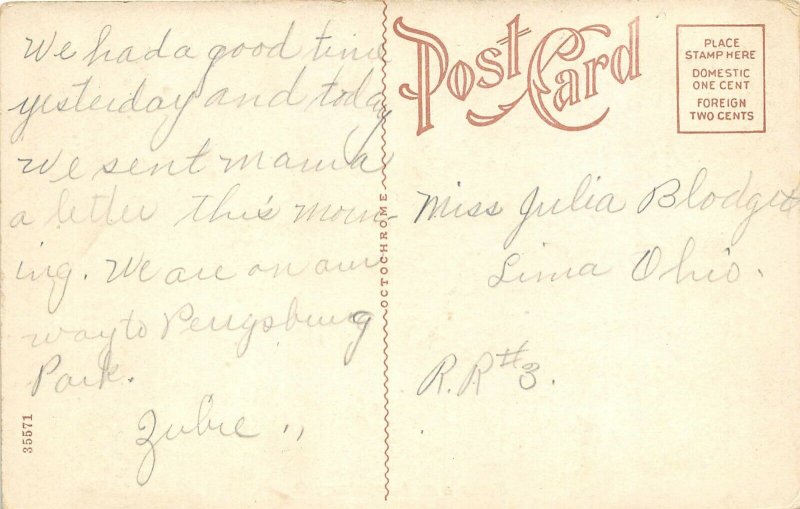 We had a good time
yesterday and today
We sent mama
a letter this morn-
ing. We are on our
way to Perrysburg
Park.
Zubie
35571
OCTOCHROME
Post Card
PLACE
STAMP HERE
DOMESTIC
ONE CENT
FOREIGN
TWO CENTS
Miss Julia Blodget
Lima Ohio.
R.R #3.